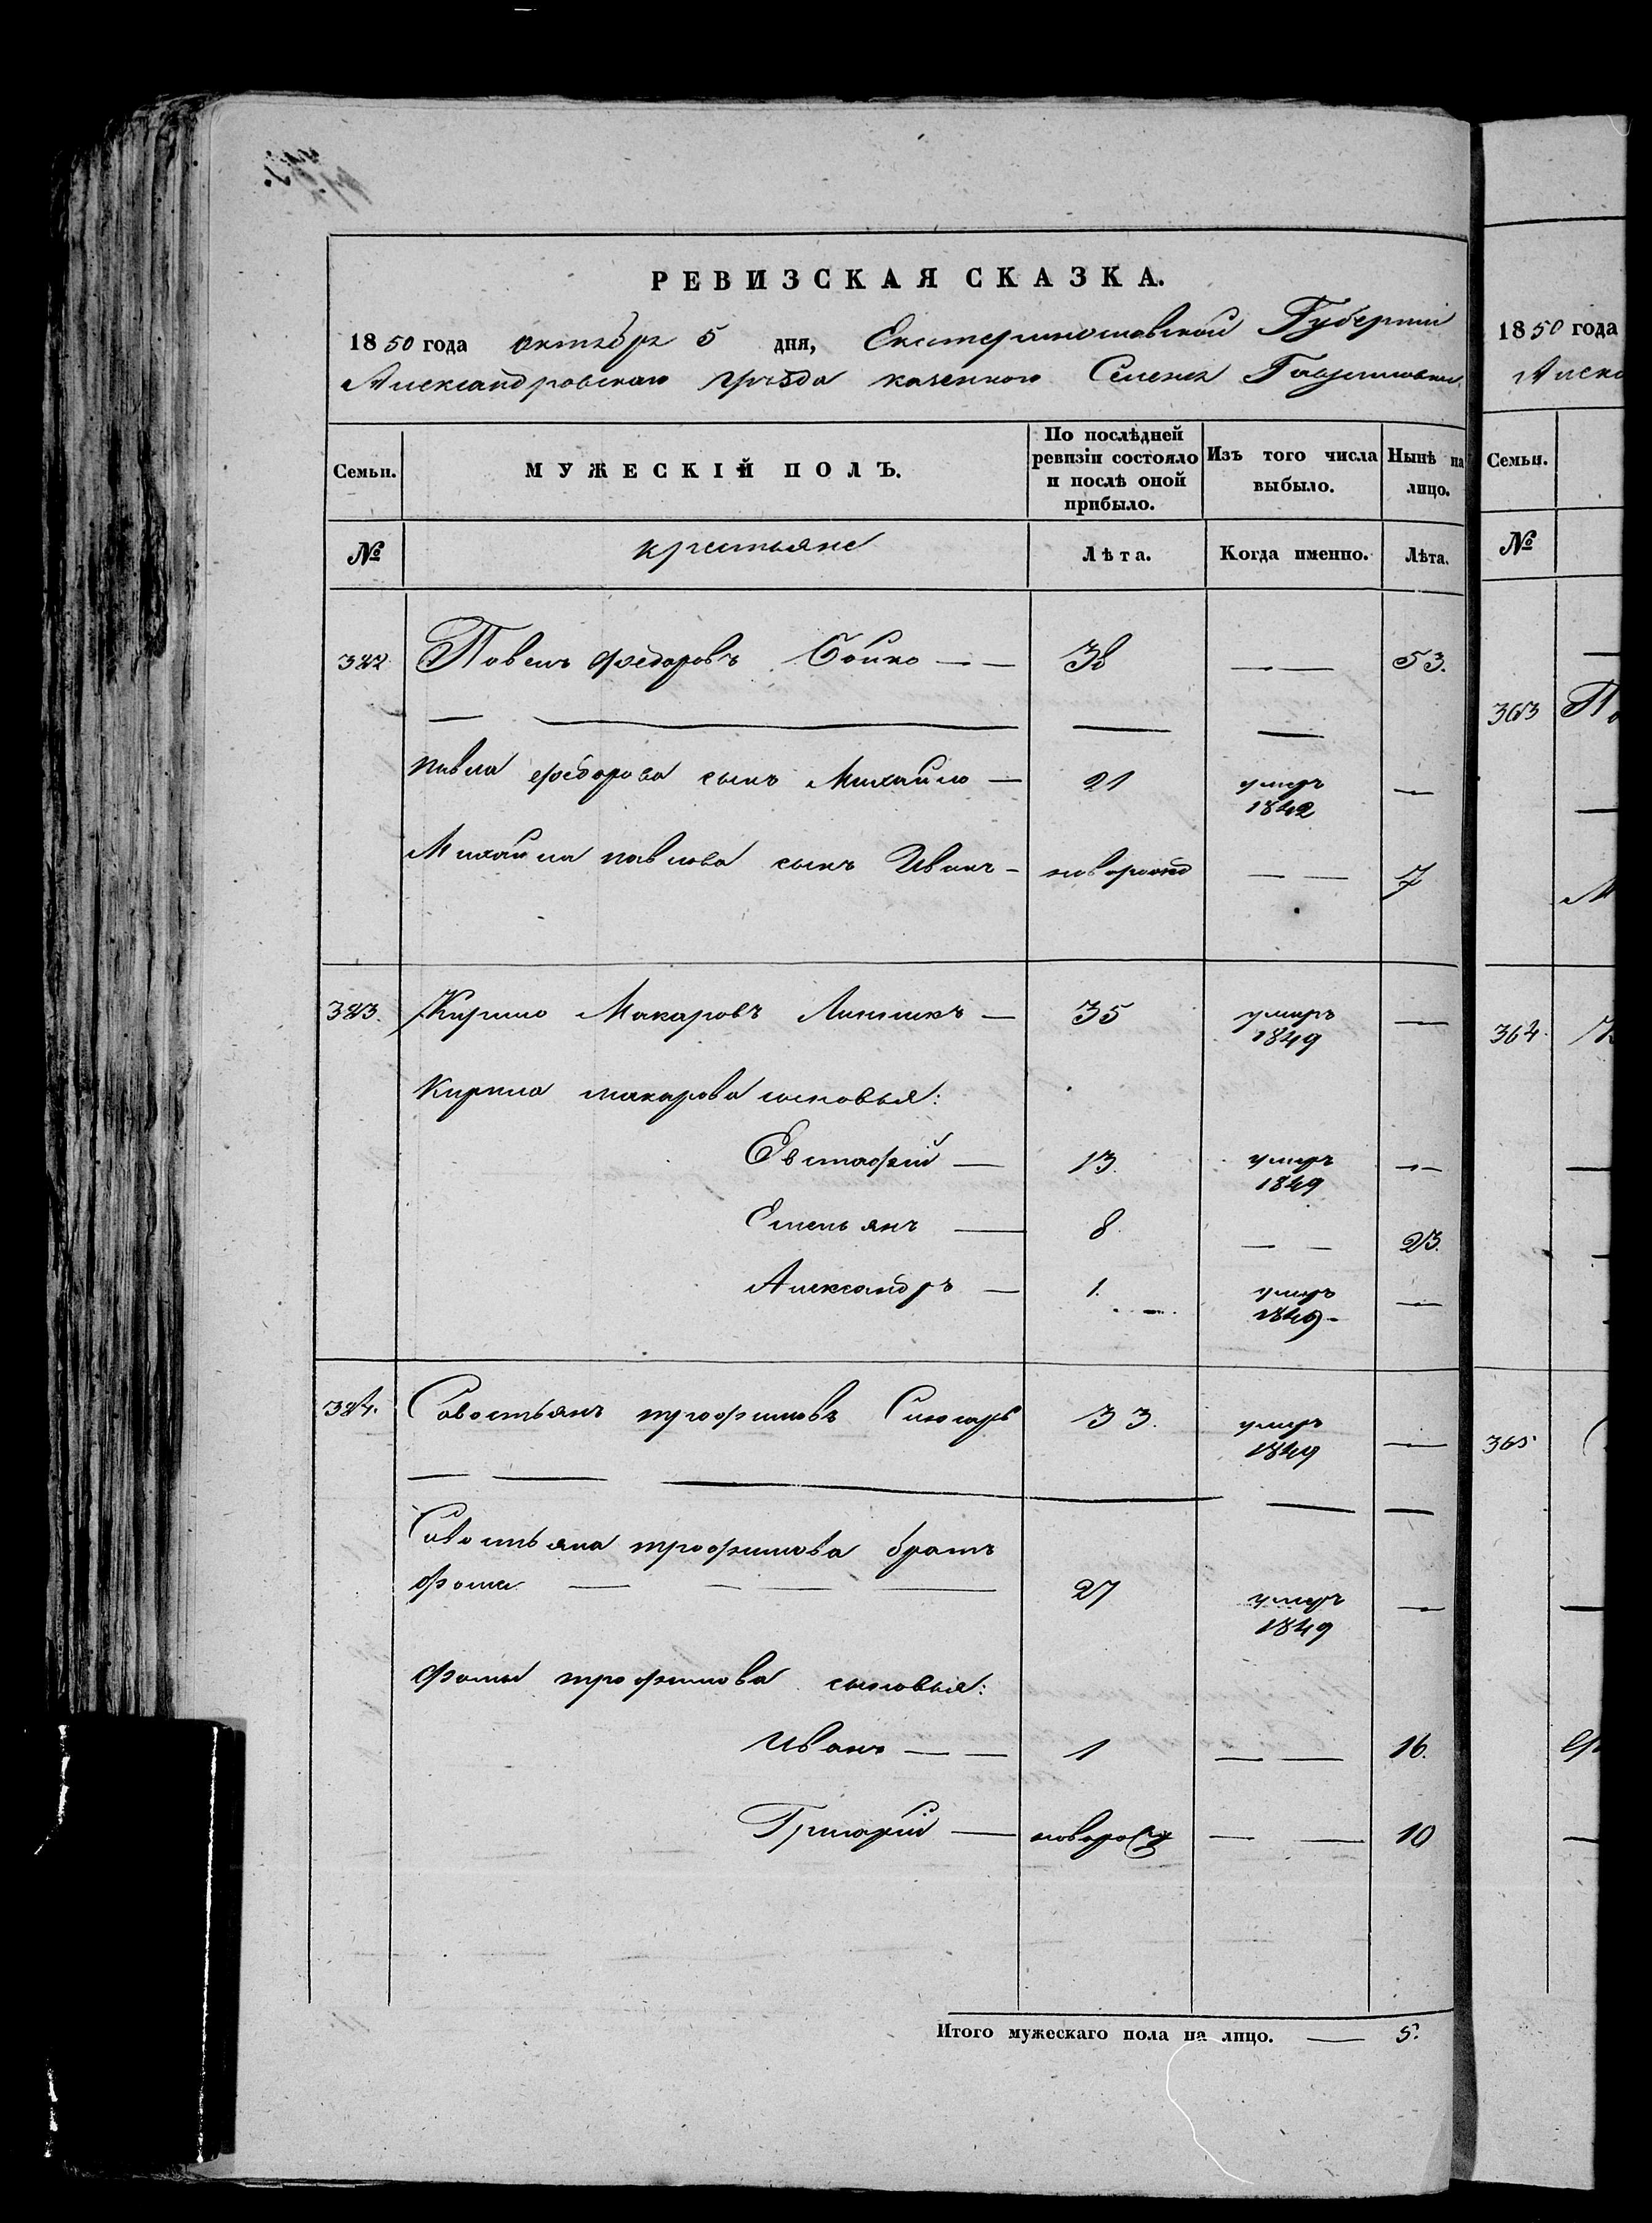 РЕВИЗСКАЯ СКАЗКА.
1850 года октября 5 дня, Екатеринославской Губернии
Александровского уѣзда казенного Селенія Гавриловки
Семьи. МУЖЕСКІЙ ПОЛЪ. По послѣдней ревизіи состояло и послѣ оной прибыло. Изъ того числа выбыло. Нынѣ на лицо.
№ крестьяне Лѣта. Когда именно. Лѣта.
322 Павелъ Федоровъ Бойко — — 38 — — 53.
Павла Федорова сынъ Михайло — 21 умеръ 1842 —
Михайла Павлова сынъ Иванъ - новорожд — — 7
323. Кирило Макаровъ Линникъ — 35 умеръ 1849 —
Кирила Макарова сыновья:
Евстафій — 13. умеръ 1849 —
Емельянъ — 8 — — 23.
Александръ — 1. умеръ 1849 —
324. Савостьянъ Трофимовъ Слюсарь 33. умеръ 1849 —
Савостьяна Трофимова братъ
Фома — — — — 27 умеръ 1849 —
Фомы Трофимова сыновья:
Иванъ — — 1 — — 16.
Григорій — новорожд — — 10
Итого мужескаго пола на лицо. — 5.
1850 года
Алекс
Семьи.
№
363 П
М
364. К
365